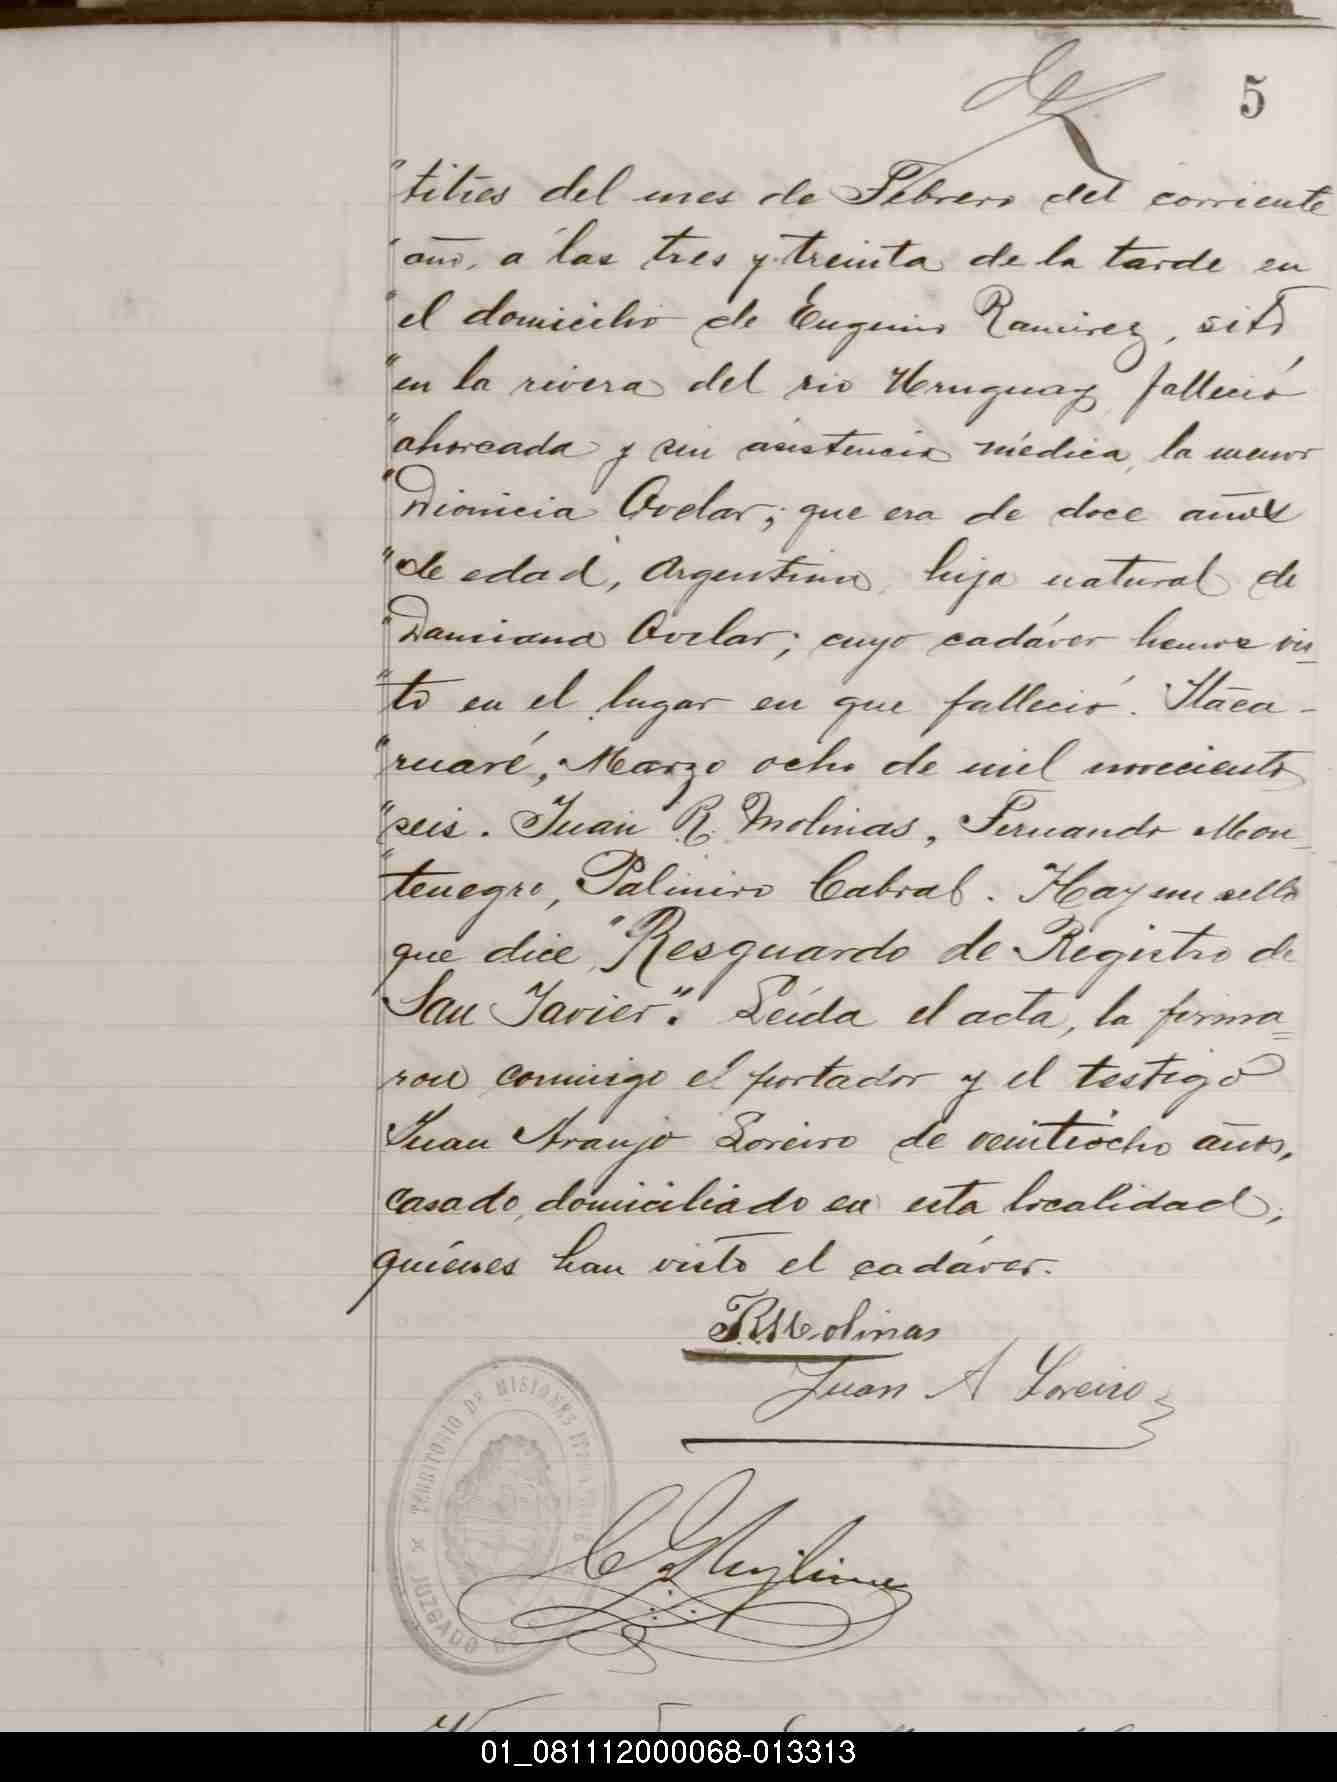 5
"titres del mes de Febrero del corriente
"año, a las tres y treinta de la tarde en
"el domicilio de Eugenio Ramirez, sito
"en la rivera del rio Uruguay, falleció
"ahorcada y sin asistencia médica, la menor
"Dionicia Ovelar; que era de doce años
"de edad, Argentina, hija natural de
"Damiana Ovelar; cuyo cadáver hemos vis-
"to en el lugar en que falleció. Itaca-
"ruaré, Marzo ocho de mil novecientos
"seis. Juan R. Molinas, Fernando Mon-
"tenegro, Palmiro Cabral. Hay un sello
que dice "Resguardo de Registro de
San Javier". Leída el acta, la firma=
ron conmigo el portador y el testigo
Juan Araujo Loreiro de veintiocho años,
casado, domiciliado en esta localidad,
quiénes han visto el cadáver.
J.R. Molinas
Juan A Loreiro
TERRITORIO DE MISIONES
JUZGADO
01_081112000068-013313